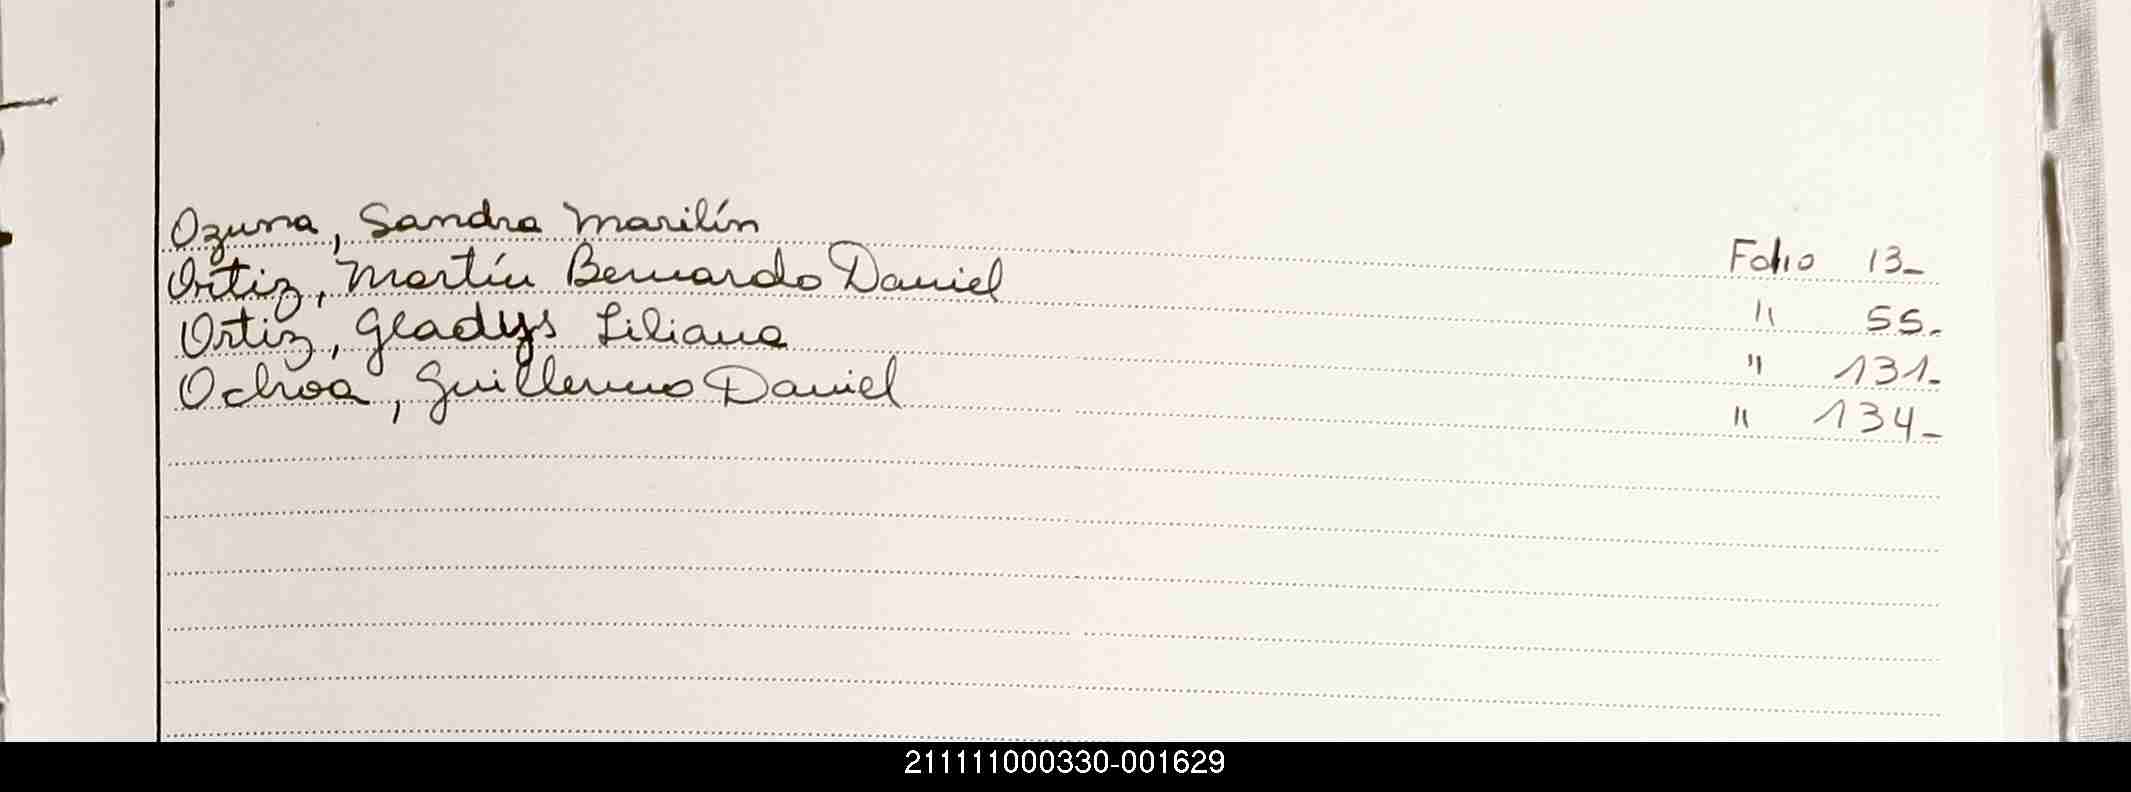 Ozuna, Sandra Marilín Folio 13_
Ortiz, Martín Bernardo Daniel " 55_
Ortiz, Gladys Liliana " 131_
Ochoa, Guillermo Daniel " 134_
211111000330-001629